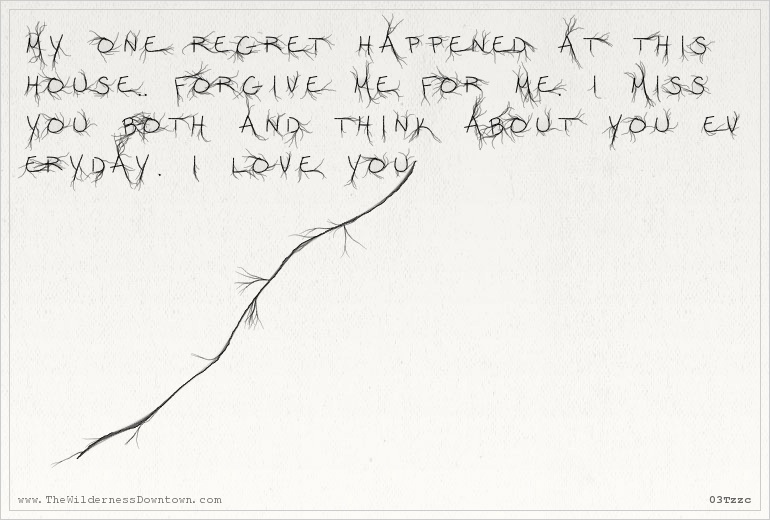 MY ONE REGRET HAPPENED AT THIS
HOUSE.. FORGIVE ME FOR ME. I MISS
YOU BOTH AND THINK ABOUT YOU EV
ERYDAY. I LOVE YOU
www.TheWildernessDowntown.com
03Tzzc